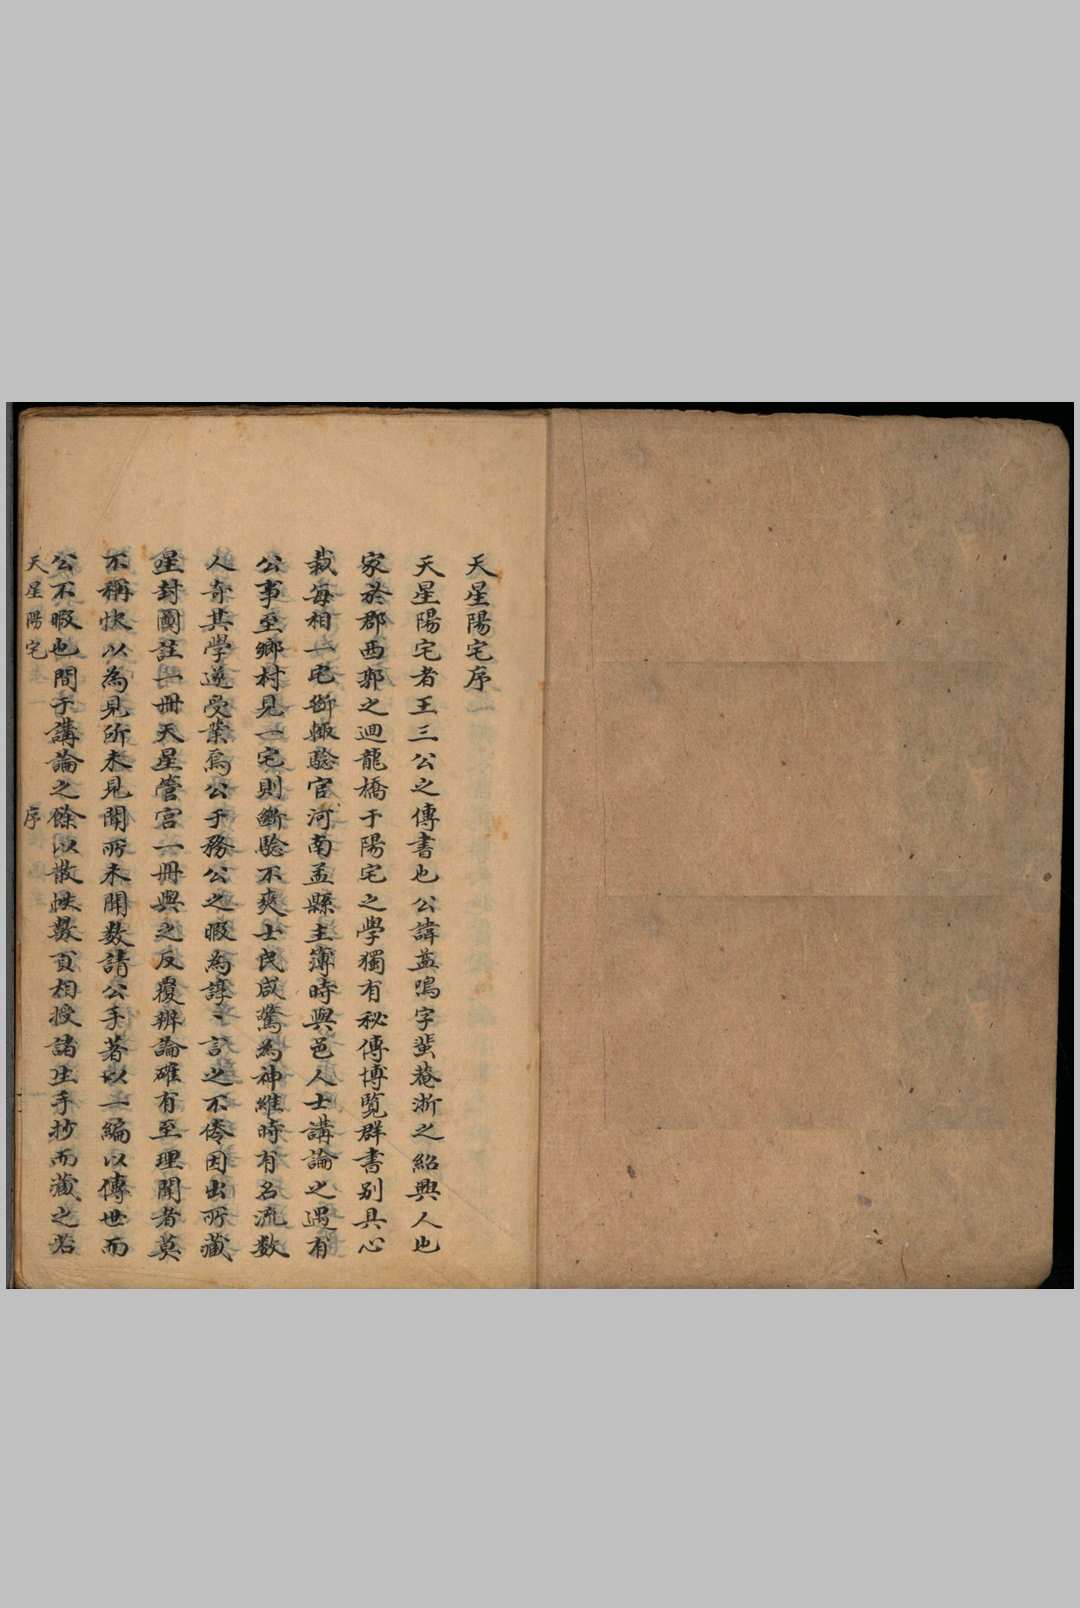 天星陽宅序
天星陽宅者王三公之傳書也公諱藎鳴字蜚菴浙之紹興人也
家於郡西郭之迴龍橋于陽宅之學獨有秘傳博覽群書别具心
裁每相一宅衙輙騐官河南孟縣主簿時與邑人士講論之遇有
公事至鄉村見一宅則斷騐不爽士民咸驚為神維時有名流数
人奇其學遂受業焉公于務公之暇為諄、言之不倦因出所藏
星封圖註一冊天星管宫一冊與之反覆辨論確有至理聞者莫
不稱快以為見所未見聞所未聞数請公手著以一編以傳世而
公不暇也間于講論之餘以散帙数頁相授諸生手抄而藏之若
天星陽宅 序